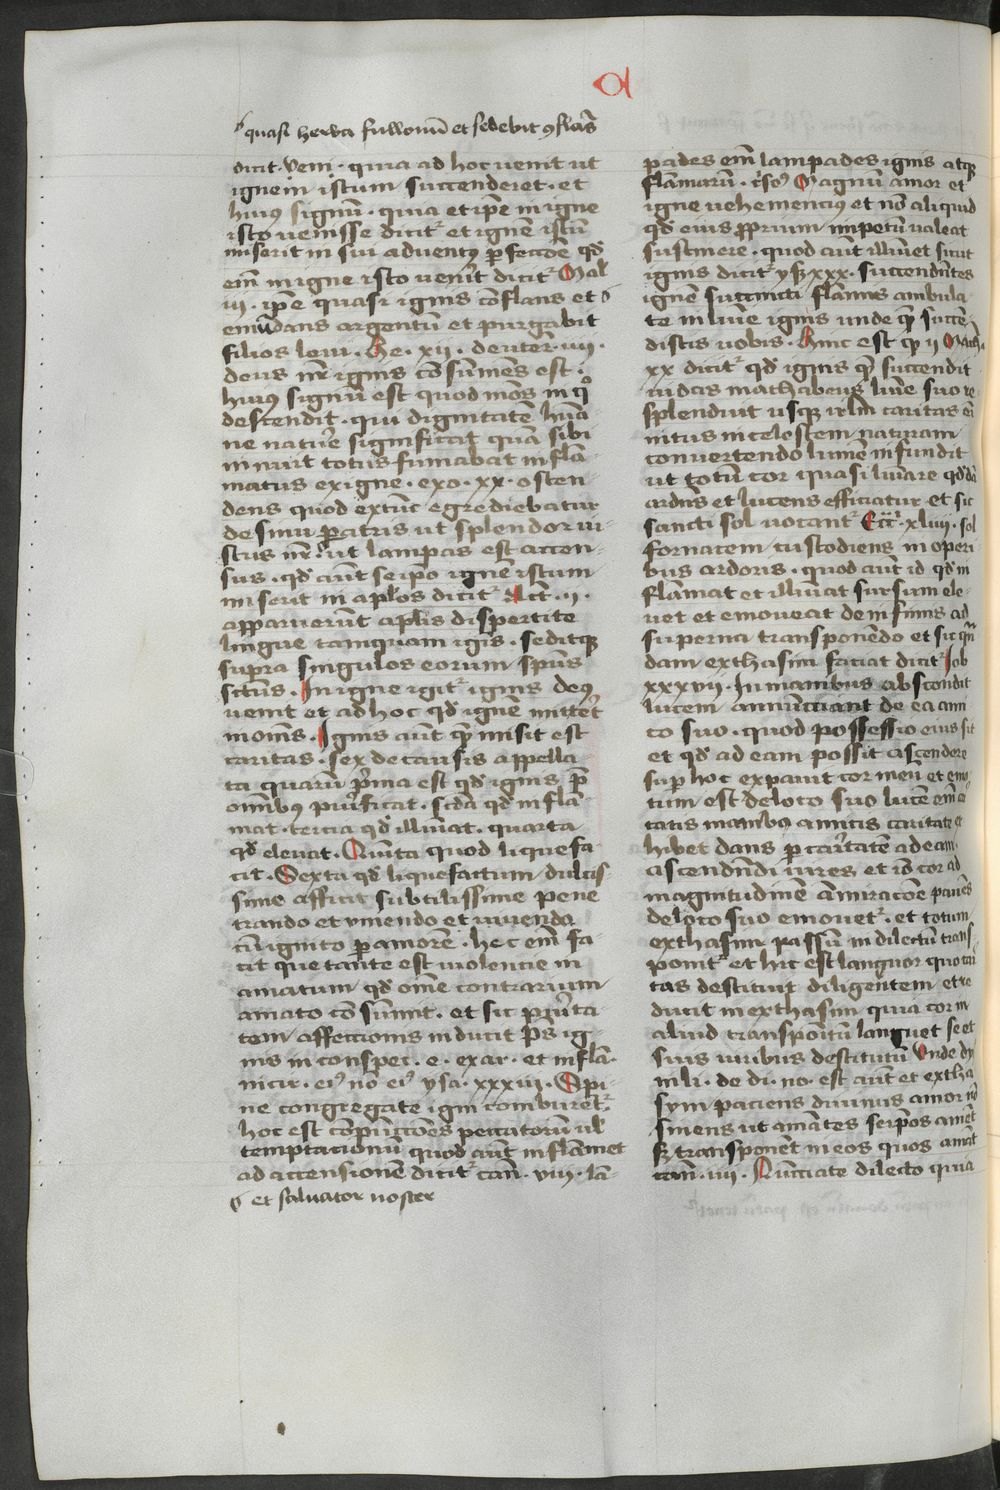 a
quasi herba fullonū et sedebit ꝯflās
dicit · veni · quia ad hoc uenit ut
ignem istum succenderet · et
huiꝰ signū · quia et ipē in igne
isto uenisse dicitᷣ et ignē istū
miserit in sui aduentꝰ ꝑfectōe qd̓
em̄ in igne isto uenit̓ dicitᷣ Mal
iii · ipē quasi ignis cōflans et
emūdans argentū et purgabit
filios leui · he · xii · deuter̄ · iiii ·
deus nr̄ ignis cōsumēs est ·
huiꝰ signū est quod mōs in q̊
descendit · qui dignitatē hūa
ne natur̄e significat quā sibi
inniuit totus fumabat inflā
matus ex igne · exo · xx · osten
dens quod extūc egrediebatur
de sinu patris ut splendor iu
stus nr̄ · ut lampas est accen
sus · qd̓ aūt seip̄o ignē istum
miserit in ap̄los dicitᷣ Act · ii ·
apparuerūt ap̄lis dispertite
lingue tamquam igis · seditqꝫ
supra singulos eorum sp̄us
sc̄tus · In igne igitᷣ ignis deꝰ
uenit et ad hoc qd̓ ignē mitter̄t
in oms · Ignis aūt quē misit est
caritas · sex de causis appella
ta quarū pr̄ma est qd̓ ignis p̄
omībus purificat · sc̄da qd̓ inflā
mat · tercia qd̓ illūiat · quarta
qd̓ eleuat · Quīta quod liquefa
cit · Sexta qd̓ liquefactum dulcis
sime afficit subtilissime pene
trando et vniendo et uiuendo
cū ignito ꝑ amorē · hec em̄ fa
cit que tante est uiolencie in
amatum qd̓ om̄e contrarium
amato cōsumit · et sic pur̄ta
tem affeccionis inducit p̄s ig
nis in conspec · e · exar · et inflā·
in cir · eiꝰ nō eiꝰ ysa · xxxiii · Spi
ne congregate igni comburētᷣ
hoc est cōpūctōes peccatorū ul̓
temptacionū quod aūt inflāmet
ad accensionē dicitᷣ can̄ · viii · lā
et saluator noster
pades em̄ lampades ignis atqꝫ
flāmarū · Magnū amor et
igne uehemenciꝰ et nō aliquid
qd̓ eius ꝓprium impetū ualeat
sustinere · quod aūt illūiet sicut
ignis dicitᷣ ysa xxx · succendētes
ignē succincti flāmis ambula
te in lūie ignis unde quē succē
distis uobis · Hinc est qd̓ ii Mach ·
xx dicitᷣ qd̓ ignis quē succendit
iudas machabeus lūie suo re
splendiuit usqꝫ irl̄m caritas em̄
intus in celestem naturam
conuertendo lumē infundit
ut totū cor quasi lūiare qd̓dā
ardēs et lucens efficiatur et sic
sancti sol uocantᷣ Ecc̄i · xliii · sol
fornacem custodiens in operi
bus ardoris · quod aūt id qd̓ in
flāmat et illūiat sursum ele
uet et emoueat de infimis ad
superna transponēdo et sic quā
dam exthasim faciat dicitᷣ Job
xxxvii · In manibus abscondit
lucem annūciant de ea ami
co suo · quod possessio eius sit
et qd̓ ad eam possit ascendere
sup̄ hoc expauit cor meū et emo
tum est de loco suo lucē em̄ ca
tatis manibꝰ amicis caritate ex
hibet dans ꝑ car̄tatē ad eam
ascendēdi uires et iō cor ad
magnitudinē āmiracōe pauēs
de loco suo emouetᷣ · et totum
exthasim passū in dilectū trans
ponitᷣ et hic est languor quo cari
tas destituit diligentem et re
ducit in exthasim quia cor in
aliud transpoītū languet se et
suis uiribus destitutū Vnde dy
in li · de di · no · est aūt et extha
sym paciens diuinus amor nō
sinens ut amātes seip̄os amēt
sꝫ transponēt in eos quos amāt
can̄ · iiii · Nūcciate dilecto quia